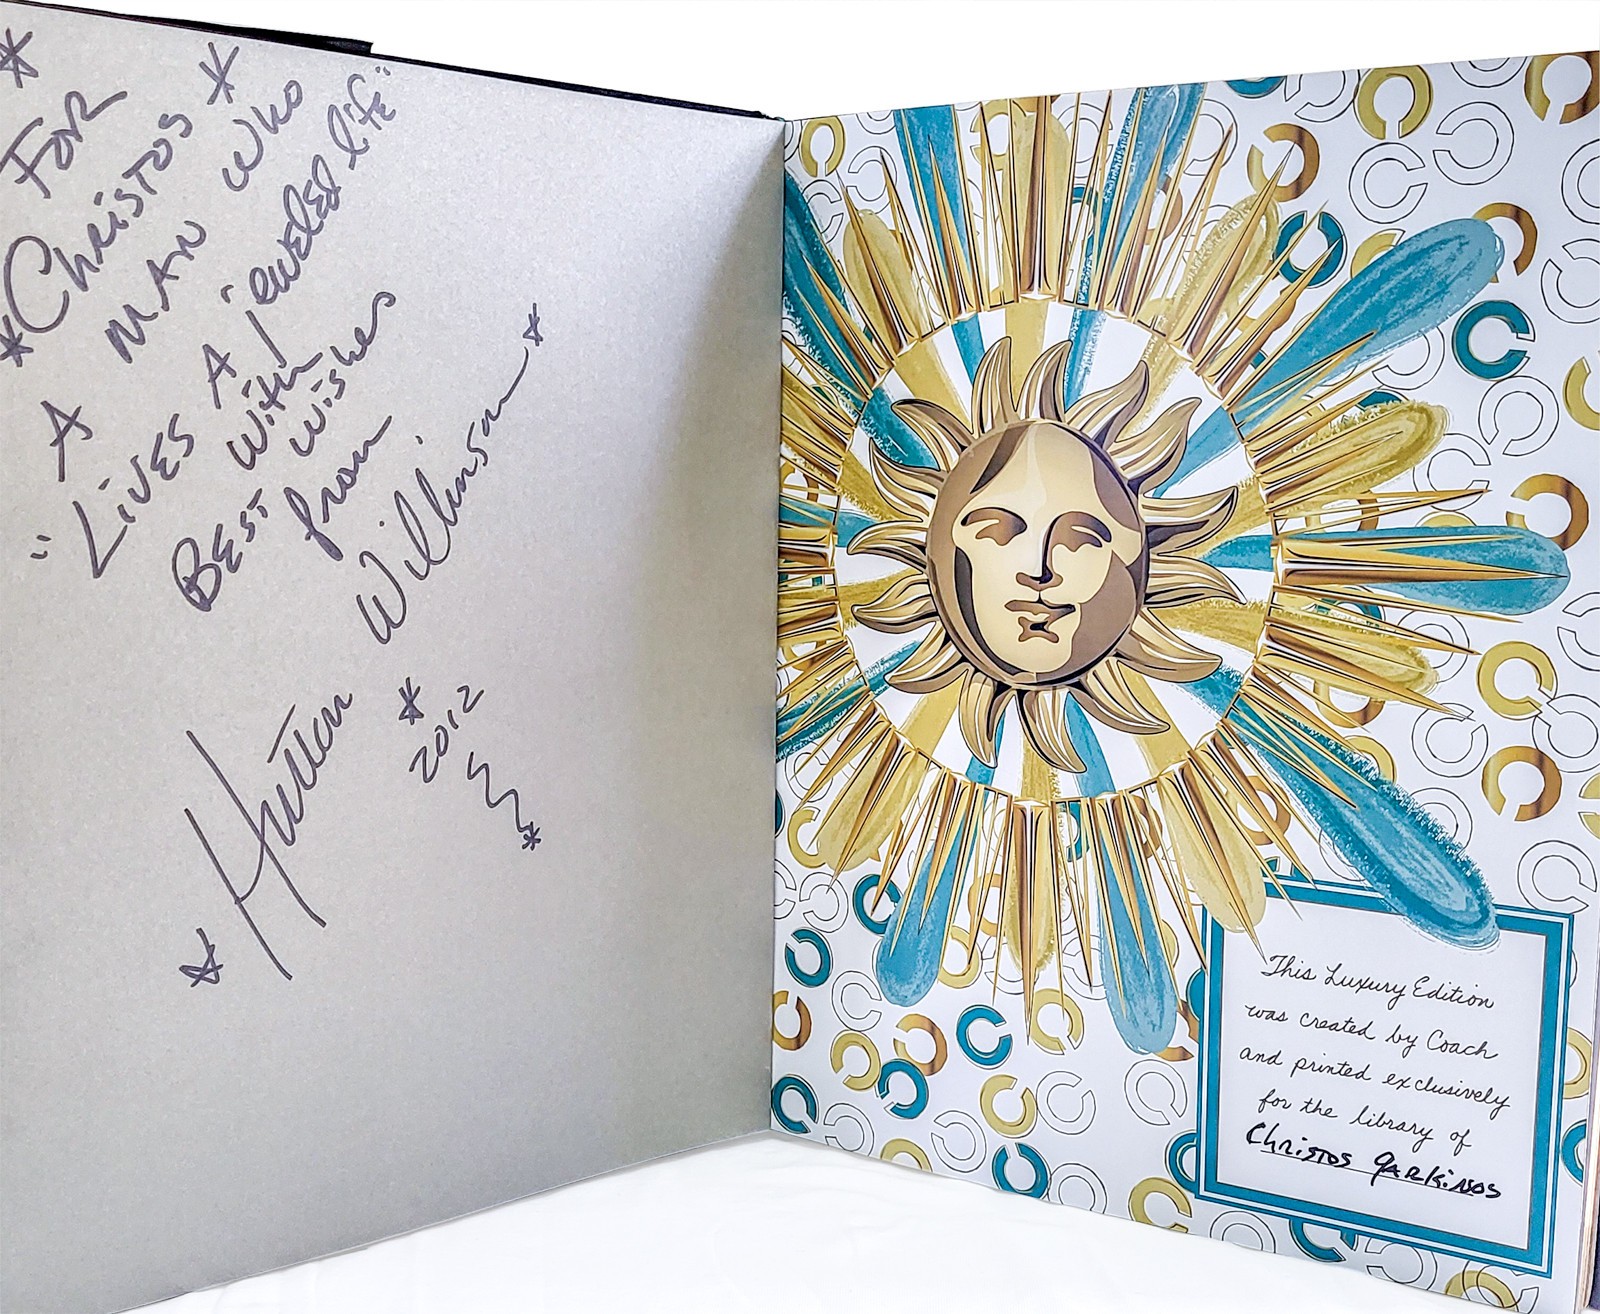 * FOR
* Christos *
A MAN who
"Lives A jeweled life"
Best with
wishes
from
* Hutton Wilkinson *
* 2012
*
This Luxury Edition
was created by Coach
and printed exclusively
for the library of
Christos Garkinos